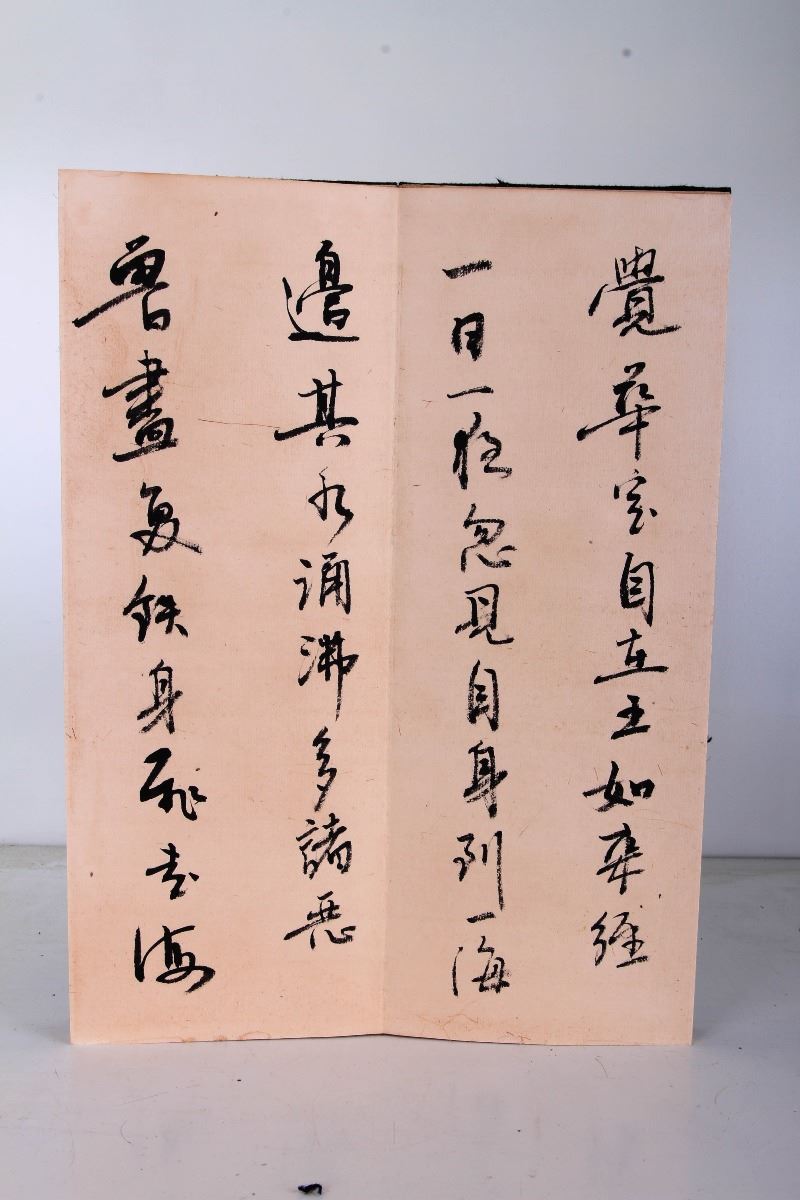 覺華定自在王如來經
一日一夜忽見自身到一海
邊其水涌沸多諸惡
兽盡复鉄身飛走海